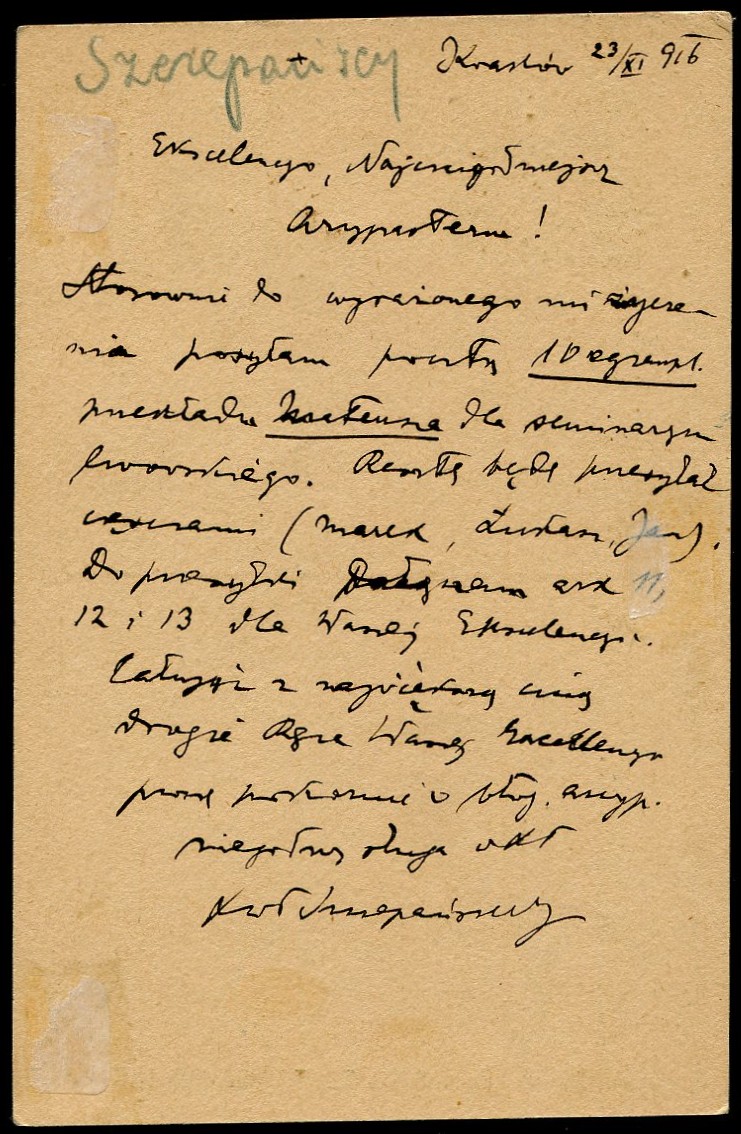 Szczepański
+ Kraków 23/XI 916
Ekscelencyo, Najczcigodniejszy
Arcypasterzu!
Stosownie do wyrażonego mi życze-
nia posyłam pocztą 10 egzempl.
przekładu Mateusza dla seminaryum
lwowskiego. Resztę będę przesyłał
częściami (Marek, Łukasz, Jan).
Do przesyłki dołączam ark 11,
12 i 13 dla Waszej Ekscelencyi.
Całując z najwiękrzą czcią
drogie Ręce Waszej Excellencyi
proszę pokornie o błog. arcyp.
niegodny sługa w Xt
Szczepański